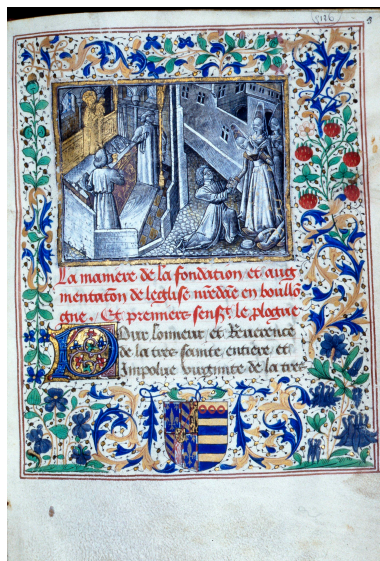 5136
3
La maniere de la fondation et aug
mentatiõn de leglise nr̃edãe en boullõ
gne. Et premiers senst̾ le plogue
Pour lonneur et Reuerence
de la tres sainte entiere et
Impolue virginite de la tres